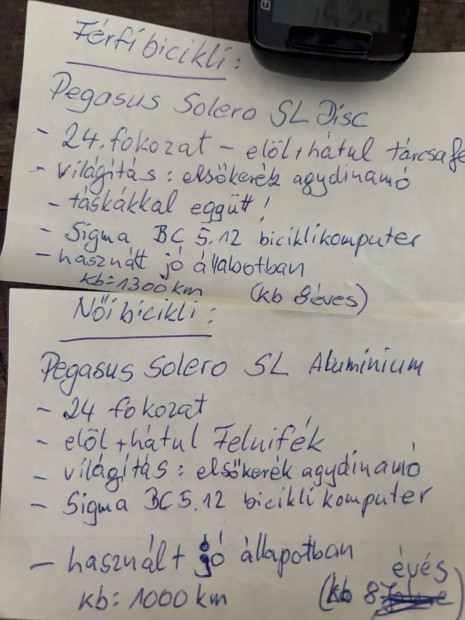 Férfi bicikli:
Pegasus Solero SL Disc
- 24. fokozat - elöl+hátul tárcsafé
- világítás: elsőkerék agydinamó
- táskákkal együtt!
- Sigma BC 5.12 biciklikomputer
- használt jó állabotban
kb=1300 km (kb 8éves)
Női bicikli:
Pegasus Solero SL Aluminium
- 24 fokozat
- elöl+hátul Felnifék
- világítás: elsőkerék agydinamó
- Sigma BC 5.12 biciklikomputer
- használt jó állapotban
kb=1000 km (kb 8 éves)